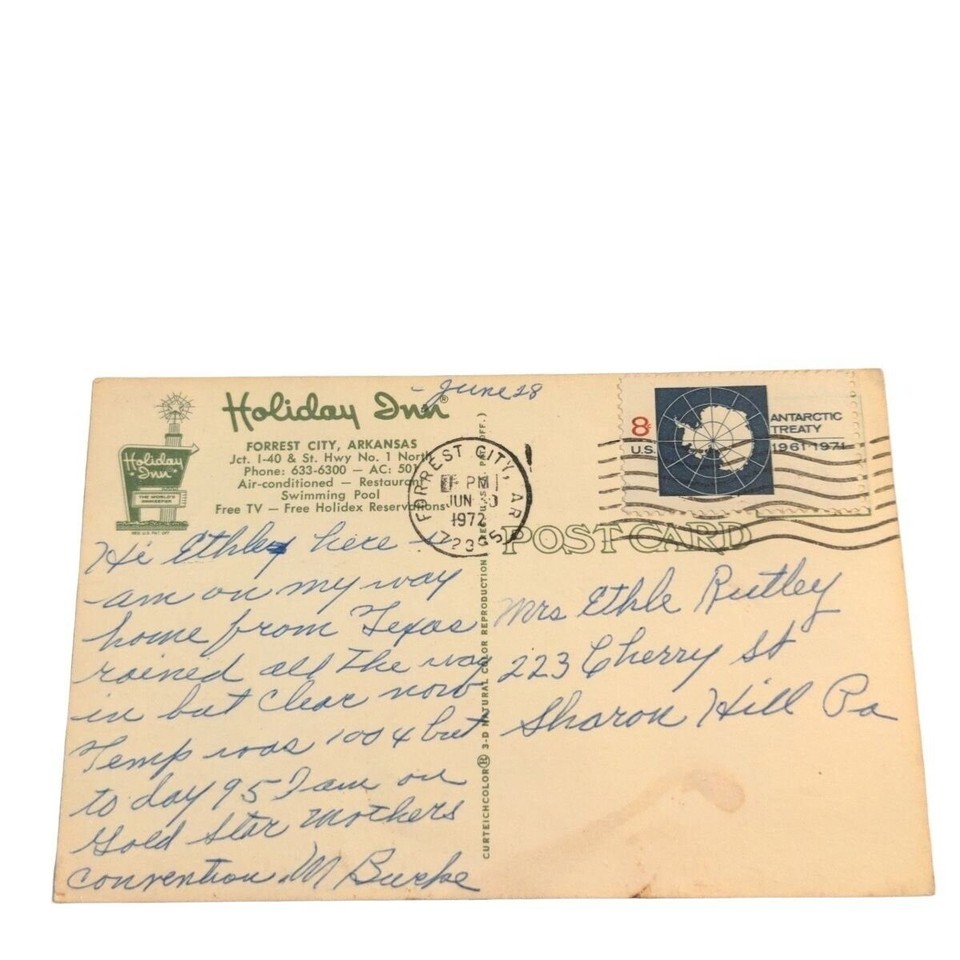 June 28
Holiday Inn®
FORREST CITY, ARKANSAS
Jct. I-40 & St. Hwy No. 1 North
Phone: 633-6300 — AC: 501
Air-conditioned — Restaurant
Swimming Pool
Free TV — Free Holidex Reservations
Holiday
Inn
THE WORLD'S
INNKEEPER
REG. U.S. PAT. OFF.
FORREST CITY, AR
PM
JUN
1972
8¢
U.S.
ANTARCTIC
TREATY
1961-1971
POST CARD
Hi Ethley here I
am on my way
home from Texas
rained all the way
in but clear now
Temp was 100 4 but
to day 95 I am on
Gold Star Mothers
convention. M Burke
CURTEICHCOLOR® 3-D NATURAL COLOR REPRODUCTION (REG. U.S.A. PAT. OFF.)
Mrs Ethle Rutley
223 Cherry St
Sharon Hill Pa